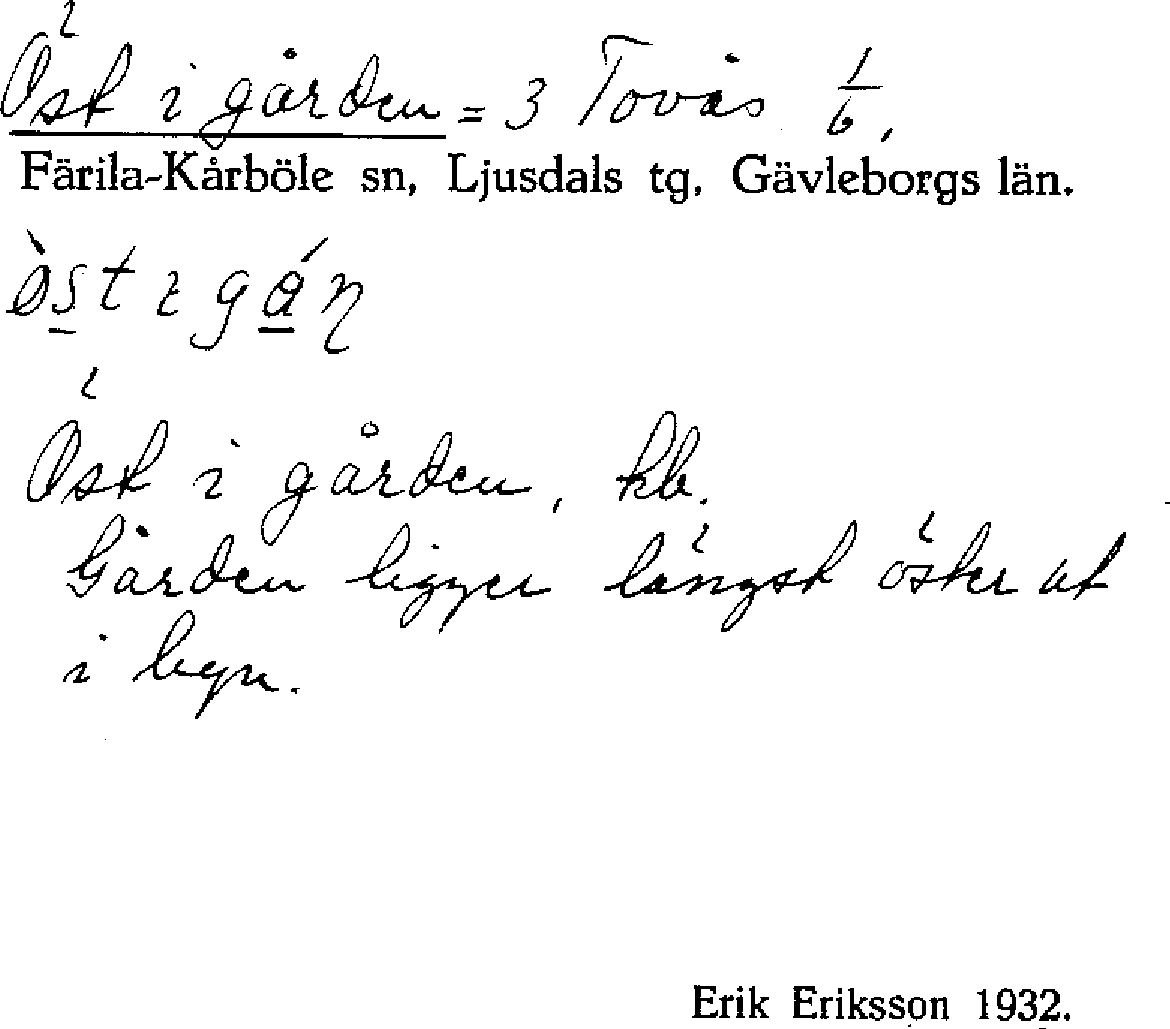 Öst i gården = 3 Tovås 1/6,
Färila-Kårböle sn, Ljusdals tg, Gävleborgs län.
öst i gáṉ
Öst i gården, kb.
Gården ligger längst öster ut
i byn.
Erik Eriksson 1932.